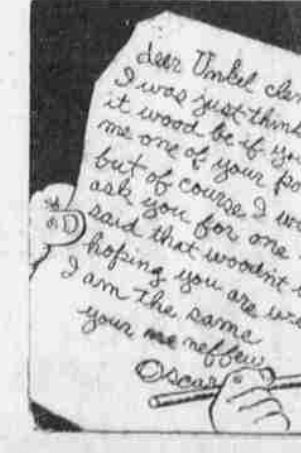 dear Unkel cler
I was just think
it wood be if you
me one of your
but of course I
ask you for one
said that woodnt
hoping you are
I am the same
your neffew
Oscar